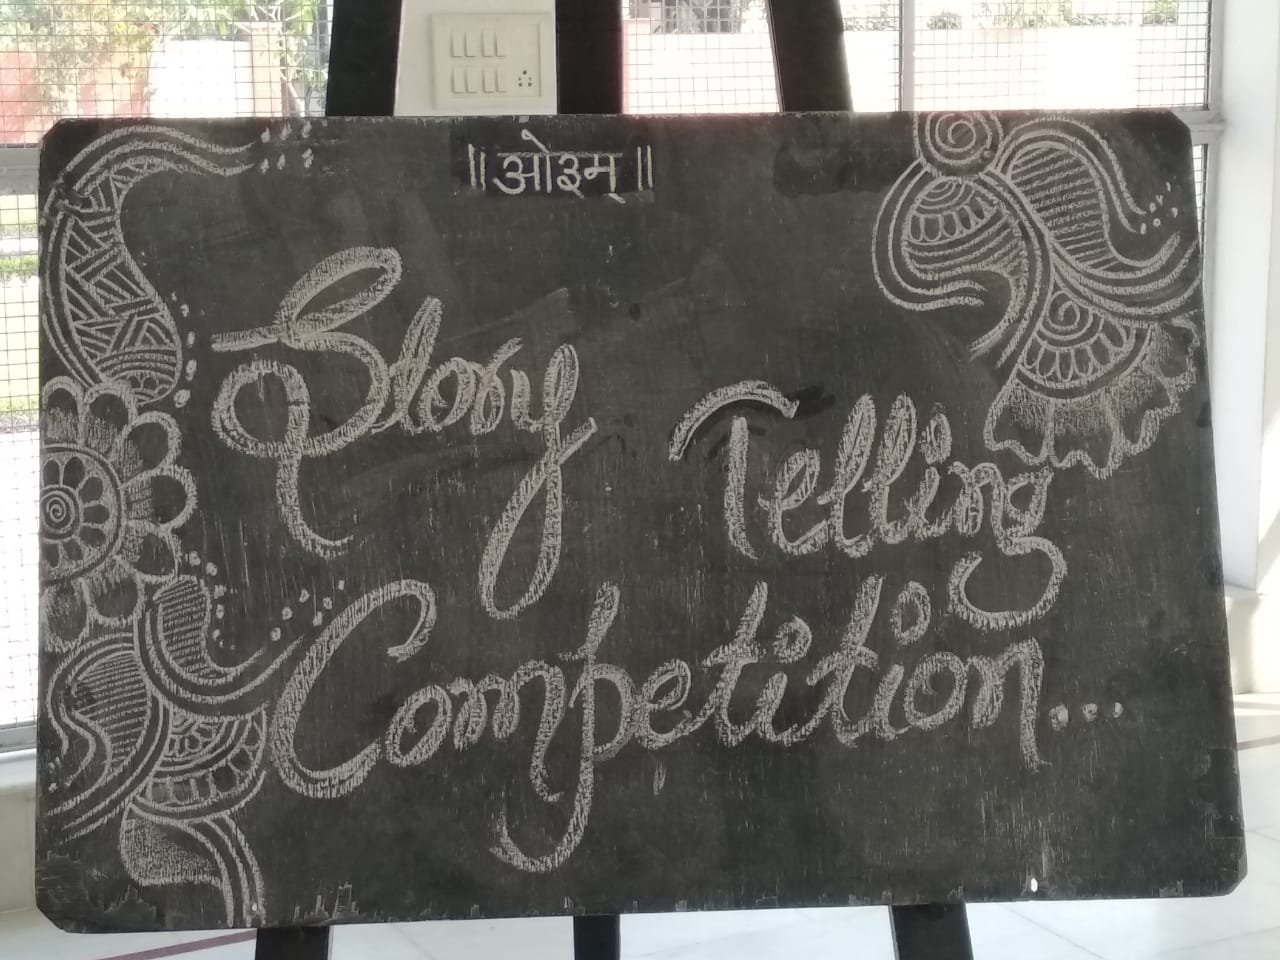 ॥ओ३म्॥
Story Telling
Competition...